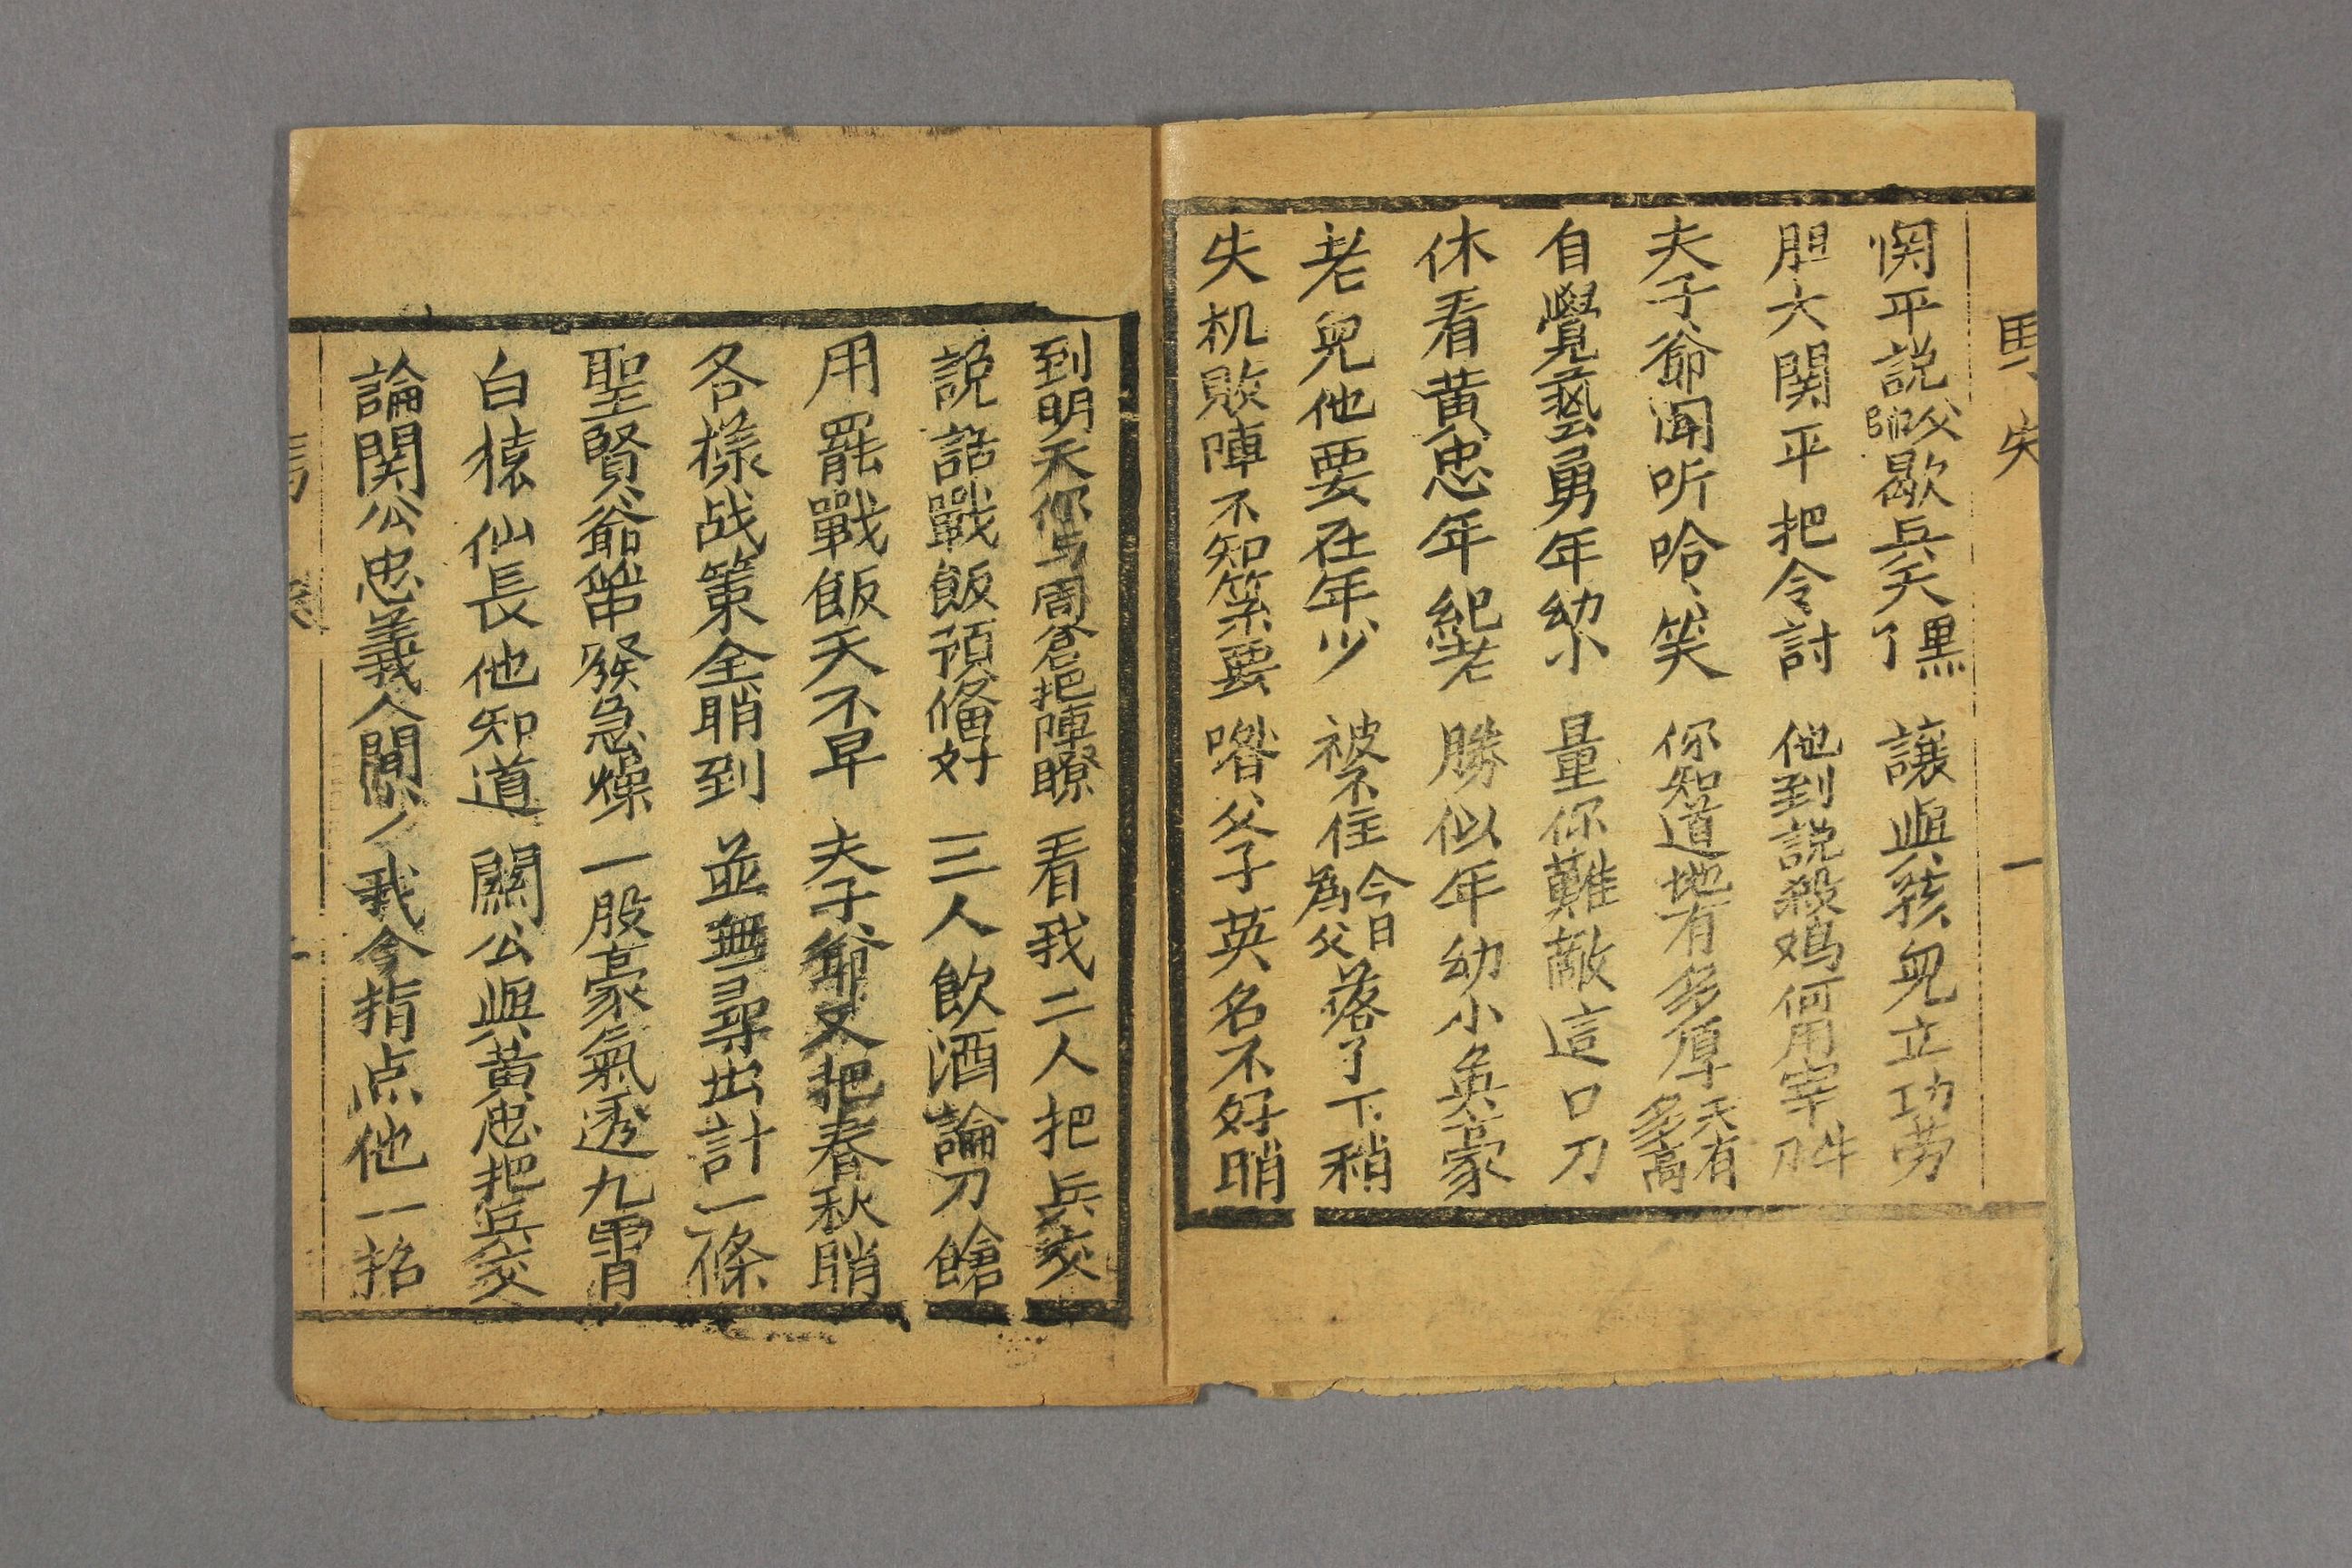 関平説父帥歇兵天黒了　讓與孩児立功劳
胆大関平把令討　他到説殺鸡何用宰牛刀
夫子爺闻听哈、笑　你知道地有多厚天有多高
自覺藝勇年幼小　量你難敵這口刀
休看黄忠年紀老　勝似年幼小英豪
老兒他要在年少　被不住今日為父落了下稍
失机敗陣不知緊要　喒父子英名不好睄
到明天你与周倉把陣瞭　看我二人把兵交
説話戰飯預俻好　三人飲酒論刀鎗
用罷戰飯天不早　夫子爺又把春秋睄
各樣战策全睄到　並無尋出計一條
聖賢爺帶發急燥　一股豪氣透九霄
白猿仙長他知道　關公與黄忠把兵交
論関公忠義人間少　我今指点他一招